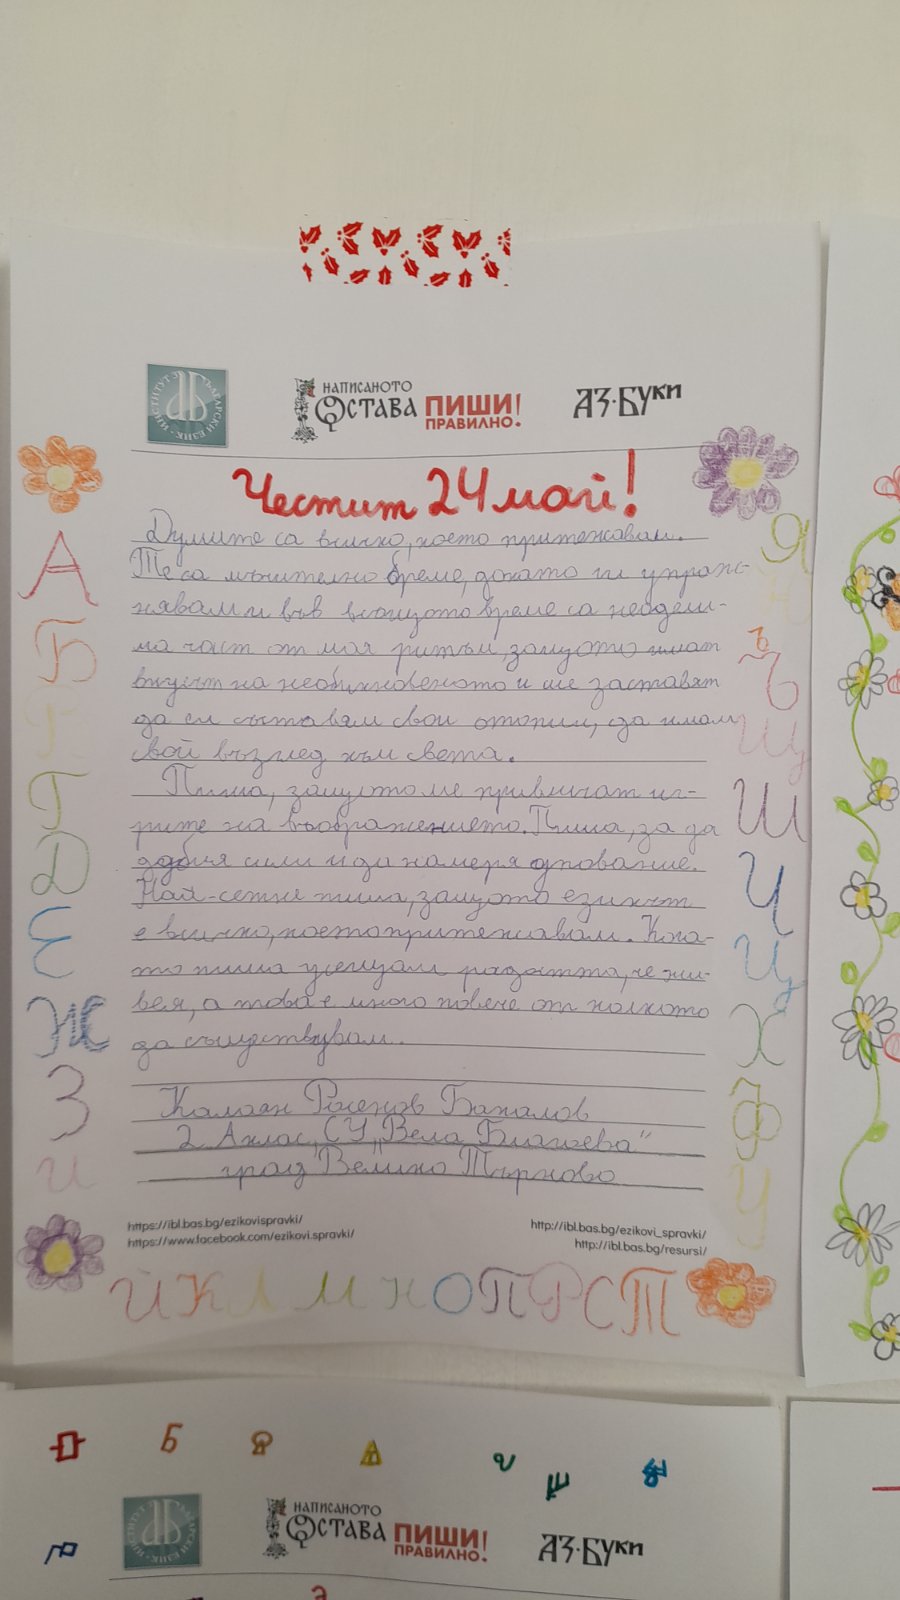 ИНСТИТУТ ЗА БЪЛГАРСКИ ЕЗИК
НАПИСАНОТО
ОСТАВА ПИШИ!
ПРАВИЛНО.
АЗ·БУКИ
Честит 24 май!
Думите са всичко, което притежавам.
Те са мъчително бреме, докато ги упраж-
нявам и във всъщото време са неодели-
ма част от моя ритъм, защото имат
вкусът на необикновеното и ме заставят
да си съставям свои опопии, да имам
свой възглед към света.
Пиша, защото ме привличат иг-
рите на въображението. Пиша, за да
добия сили и да намеря упование.
Най-сетне пиша, защото езикът
е всичко, което притежавам. Кога-
то пиша усещам радостта, че жи-
вея, а това е много повече от колкото
да съществувам.
Калоян Росенов Бакалов
2 А клас, СУ „Вела Благоева"
град Велико Търново
https://ibl.bas.bg/ezikovispravki/
https://www.facebook.com/ezikovi.spravki/
http://ibl.bas.bg/ezikovi_spravki/
http://ibl.bas.bg/resursi/
А
Б
В
Г
Д
Е
Ж
З
И
Й К Л М Н О П Р С Т
Я
ь
Ъ
Щ
Ш
Ч
Ц
Х
Ф
У
Б
НАПИСАНОТО
ОСТАВА ПИШИ!
ПРАВИЛНО.
АЗ·БУКИ